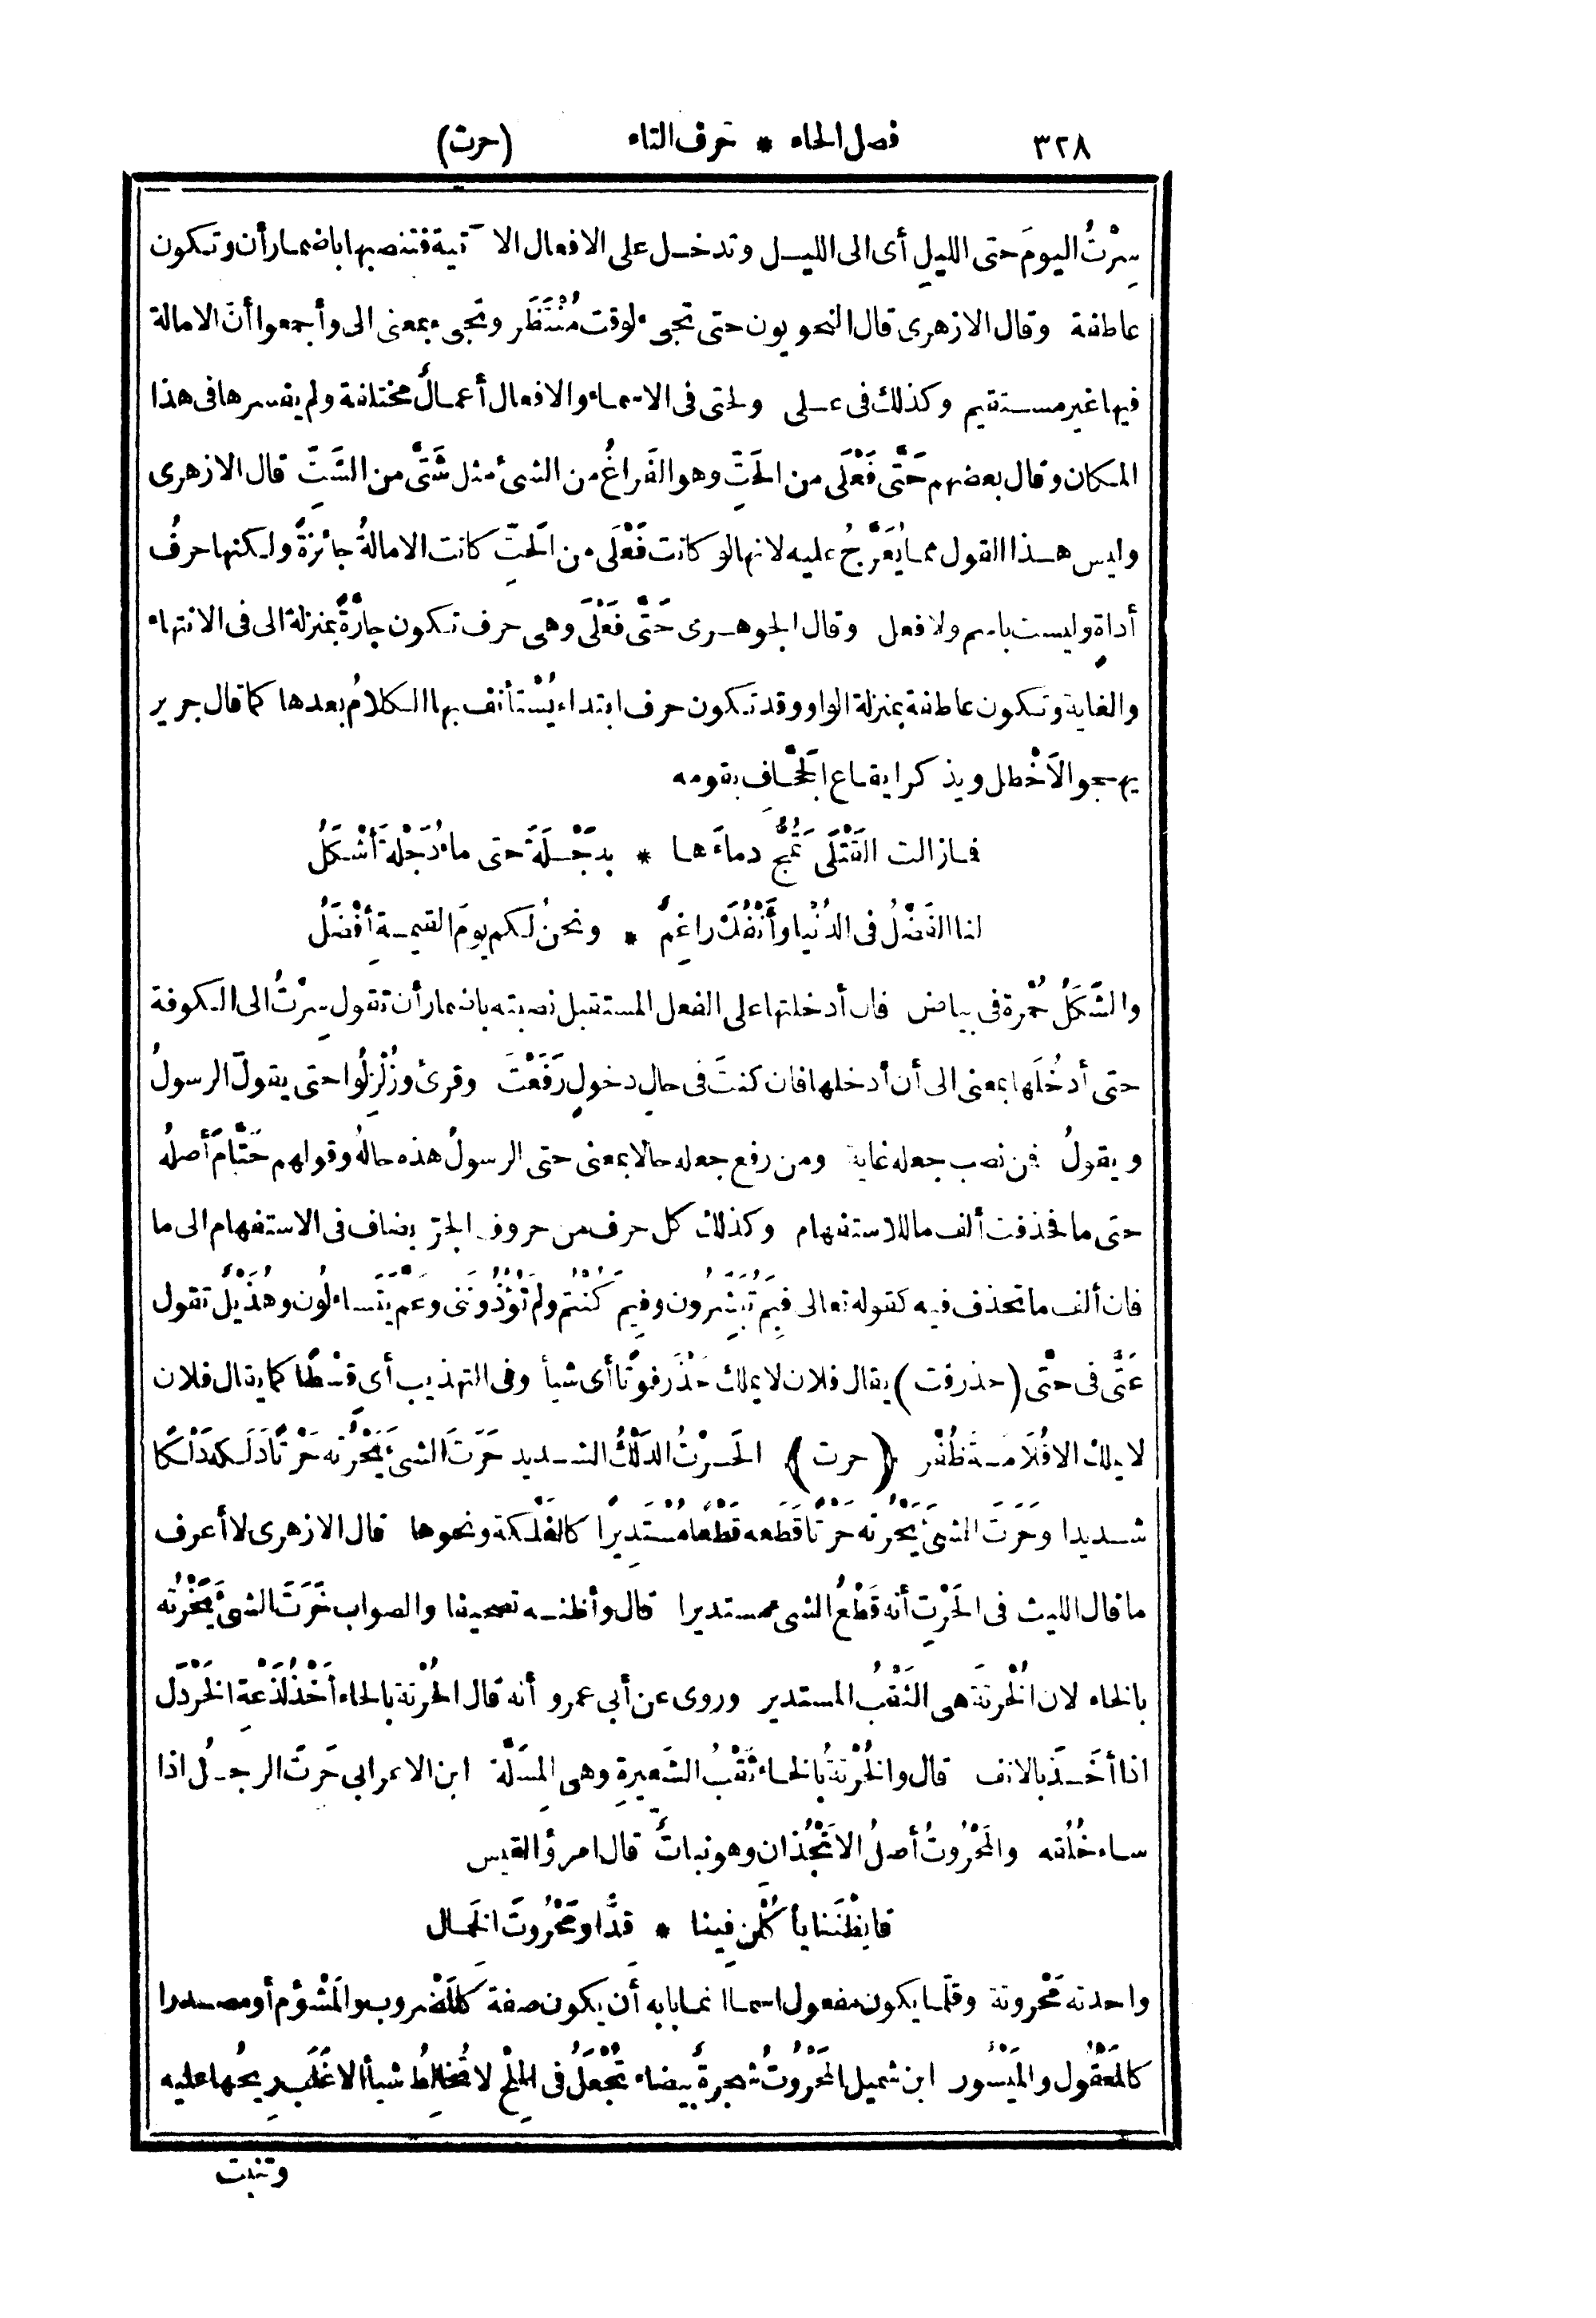 ٣٢٨ فصل الحاء * حرف التاء (حرت)
سِرْتُ اليومَ حتى الليلِ أى الى الليل وتدخل على الافعال الآتية فتنصبها باضمار أن وتكون
عاطفة وقال الازهرى قال النحويون حتى تجىء لوقت مُنْتَظَر وتجىء بمعنى الى وأجمعوا أنّ الامالة
فيها غير مستقيم وكذلك فى على ولحتى فى الاسماء والافعال أعمالٌ مختلفة ولم يفسرها فى هذا
المكان وقال بعضهم حَتَّى فَعْلَى من الحَتِّ وهو الفَراغُ من الشئ مثل شَتَّى من الشَّتِّ قال الازهرى
وليس هذا القول مما يُعَرَّجُ عليه لانها لو كانت فَعْلَى من الحَتِّ كانت الامالةُ جائزةً ولكنها حرفُ
أداةٍ وليست باسم ولا فعل وقال الجوهرى حَتَّى فَعْلَى وهى حرف تكون جارَّةً بمنزلة الى فى الانتهاء
والغاية وتكون عاطفة بمنزلة الواو وقد تكون حرف ابتداء يُسْتأنف بها الكلامُ بعدها كما قال جرير
يهجو الاَخْطل ويذكر ايقاع الجَحَّافِ بقومه
فما زالت القَتْلَى تَمُجُّ دماءَها * بدَجْلَةَ حتى ماءُ دَجْلةَ أَشْكَلُ
لنا الفَضْلُ فى الدُنْيا وأَنْفُكَ راغِمٌ * ونحنُ لكم يومَ القيمةِ أفْضَلُ
والشَّكَلُ حُمْرة فى بياض فان أدخلتها على الفعل المستقبل نصبته باضمار أن تقول سِرْتُ الى الكوفة
حتى أدخُلَها بمعنى الى أن أدخلها فان كنتَ فى حالِ دخولٍ رَفَعْتَ وقرئ وزُلْزِلُوا حتى يقولَ الرسولُ
ويقولُ فمن نصب جعله غاية ومن رفع جعله حالا بمعنى حتى الرسولُ هذه حالهُ وقولهم حَتَّامَ أصلُه
حتى ما فحذفت ألف ما للاستفهام وكذلك كل حرف من حروف الجرّ يضاف فى الاستفهام الى ما
فان ألف ما تحذف فيه كقوله تعالى فبِمَ تُبَشِّرُون وفِيمَ كُنْتُم ولَم تُؤْذُونَنى وعَمَّ يَتَساءلُون وهُذَيْلٌ تقول
عَتَّى فى حتَّى (حذرفت) يقال فلان لا يملك حَذْرَفوُتًا أى شيأ وفى التهذيب أى قسْطًا كما يقال فلان
لا يملك الا قُلَامَةَ ظُفْر (حرت) الحَرْتُ الدَلْكُ الشديد حَرَتَ الشئَ يَحْرُته حَرْتًا دَلَكه دَلْكًا
شديدا وحَرَتَ الشئَ يَحْرُته حَرْتًا قَطَعه قَطْعًا مُسْتَدِيرًا كالفَلْكة ونحوها قال الازهرى لا أعرف
ما قال الليث فى الحَرْتِ أنه قَطْعُ الشىء مستديرا قال وأظنه تصحيفا والصواب خَرَتَ الشئَ يَخْرُته
بالخاء لان الخُرْتَةَ هى الثَقْبُ المستدير وروى عن أبى عمرو أنه قال الحُرْتة بالحاء أَخْذُ لَذْعةِ الخَرْدَل
اذا أخَذَ بالانف قال والخُرْتةُ بالخاء ثَقْبُ الشَعيرةِ وهى المِسَلَّة ابن الاعرابى حَرِتَ الرجلُ اذا
ساء خُلُقه والمَحْرُوتُ أصلُ الاَنْجُذانِ وهو نباتٌ قال امرؤ القيس
قايظْنَنا يأكُلْنَ فِينا * قِدًّا ومَحْرُوتَ الخَمال
واحدته مَحْروتة وقلَّما يكون مفعول اسما انما بابه أن يكون صفة كالمَضْروب والمَشْؤم أو مصدرا
كالمَعْقُول والمَيْسُور ابن شميل المَحْرُوتُ شجرةٌ بيضاء تُجْعَلُ فى المِلْح لا تُخالِطُ شيأ الا غَلَب رِيحُها عليه
وتنبت